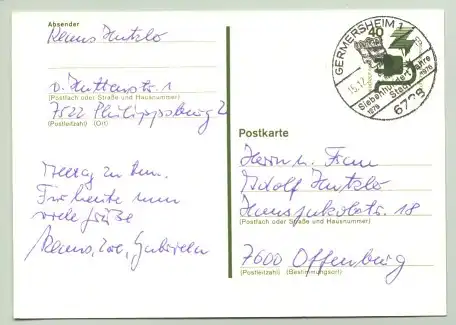 Absender
Klaus Hutzlo
v. Huttenstr. 1
(Postfach oder Straße und Hausnummer)
7522 Philippsburg 2
(Postleitzahl) (Ort)
Für heute nun
viele Grüße
Klaus,
GERMERSHEIM 1
40
15.12.
Siebenhundert Jahre
Stadt
1276 1976
6728
Postkarte
Herrn u. Frau
Adolf Hutzlo
Hansjakobstr. 18
(Postfach oder Straße und Hausnummer)
7600 Offenburg
(Postleitzahl) (Bestimmungsort)